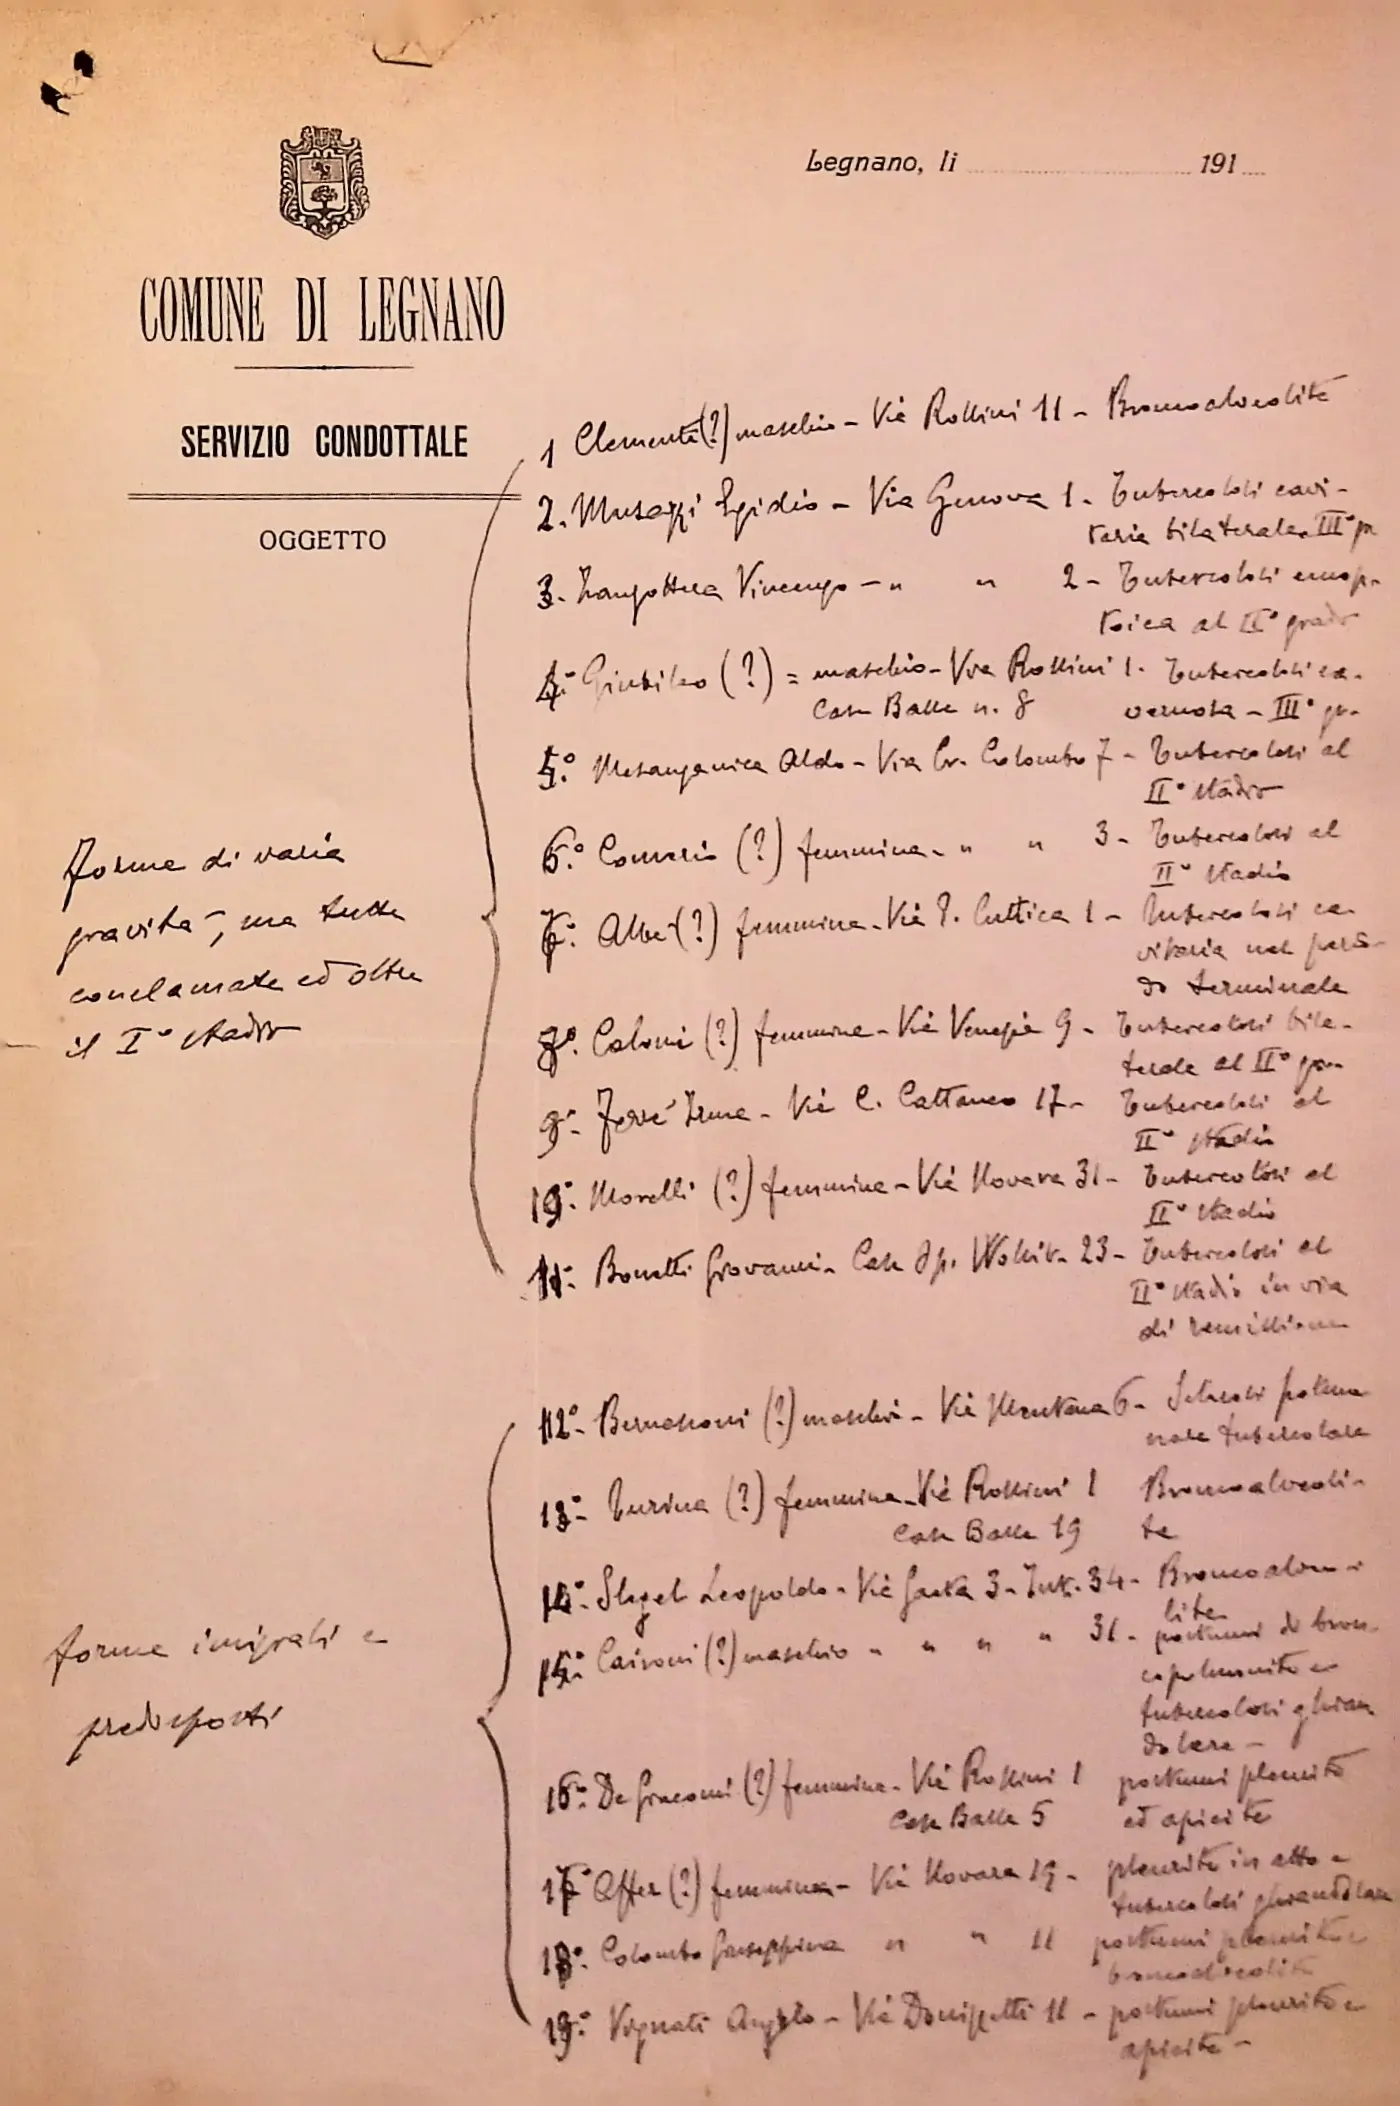 Legnano, li ........ 191....
COMUNE DI LEGNANO
SERVIZIO CONDOTTALE
OGGETTO
1 Clemente (?) maschio - Via Rossini 11 - Broncoalveolite
2. Musazzi Egidio - Via Genova 1 - Tubercolosi cavi-
taria bilaterale III° gr.
3. Zangottera Vincenzo - " " 2 - Tubercolosi emop-
toica al II° grado
4° Giubileo (?) = maschio - Via Rossini 1 - Tubercolosi ca-
Case Basse n. 8 vernosa - III° gr.
5° Mezzanzanica Aldo - Via Cr. Colombo 7 - Tubercolosi al
II° stadio
6° Comerio (?) femmina - " " 3 - Tubercolosi al
II° stadio
(?) femmina - Via P. Cuttica 1 - Tubercolosi ca-
vitaria nel perio-
do terminale
Coloni (?) femmina - Via Venezia 9 - Tubercolosi bila-
terale al II° gr.
9° Irma - Via C. Cattaneo 17 - Tubercolosi al
II° stadio
10° Morelli (?) femmina - Via Novara 31 - Tubercolosi al
II° stadio
11° Bonetti Giovanni - Case Op. 23 - Tubercolosi al
II° stadio in via
di remissione
forme di varia
gravità, ma tutte
conclamate ed oltre
il I° stadio
12° Bernasconi (?) maschio - Via Mentana 6 - Sclerosi polmo
nare tubercolare
13° Turina (?) femmina - Via Rossini 1 Broncoalveoli-
Case Basse 19 te
14° Leopoldo - Via Gaeta 3 - Int. 34 - Broncoalveo-
lite
15° Caironi (?) maschio - " " " 31 - postumi di bron-
copolmonite e
tubercolosi ghian
dolare -
16° De Giacomi (?) femmina - Via Rossini 1 postumi pleurite
Case Basse 5 ed apicite
17° Offer (?) femmina - Via Novara 19 - pleurite in atto e
tubercolosi ghiandolare
18° Colombo Giuseppina " " 11 postumi pleurite e
broncoalveolite
19° Vignati Angelo - Via Donizzetti 11 - postumi pleurite e
apicite -
forme iniziali e
predisposti